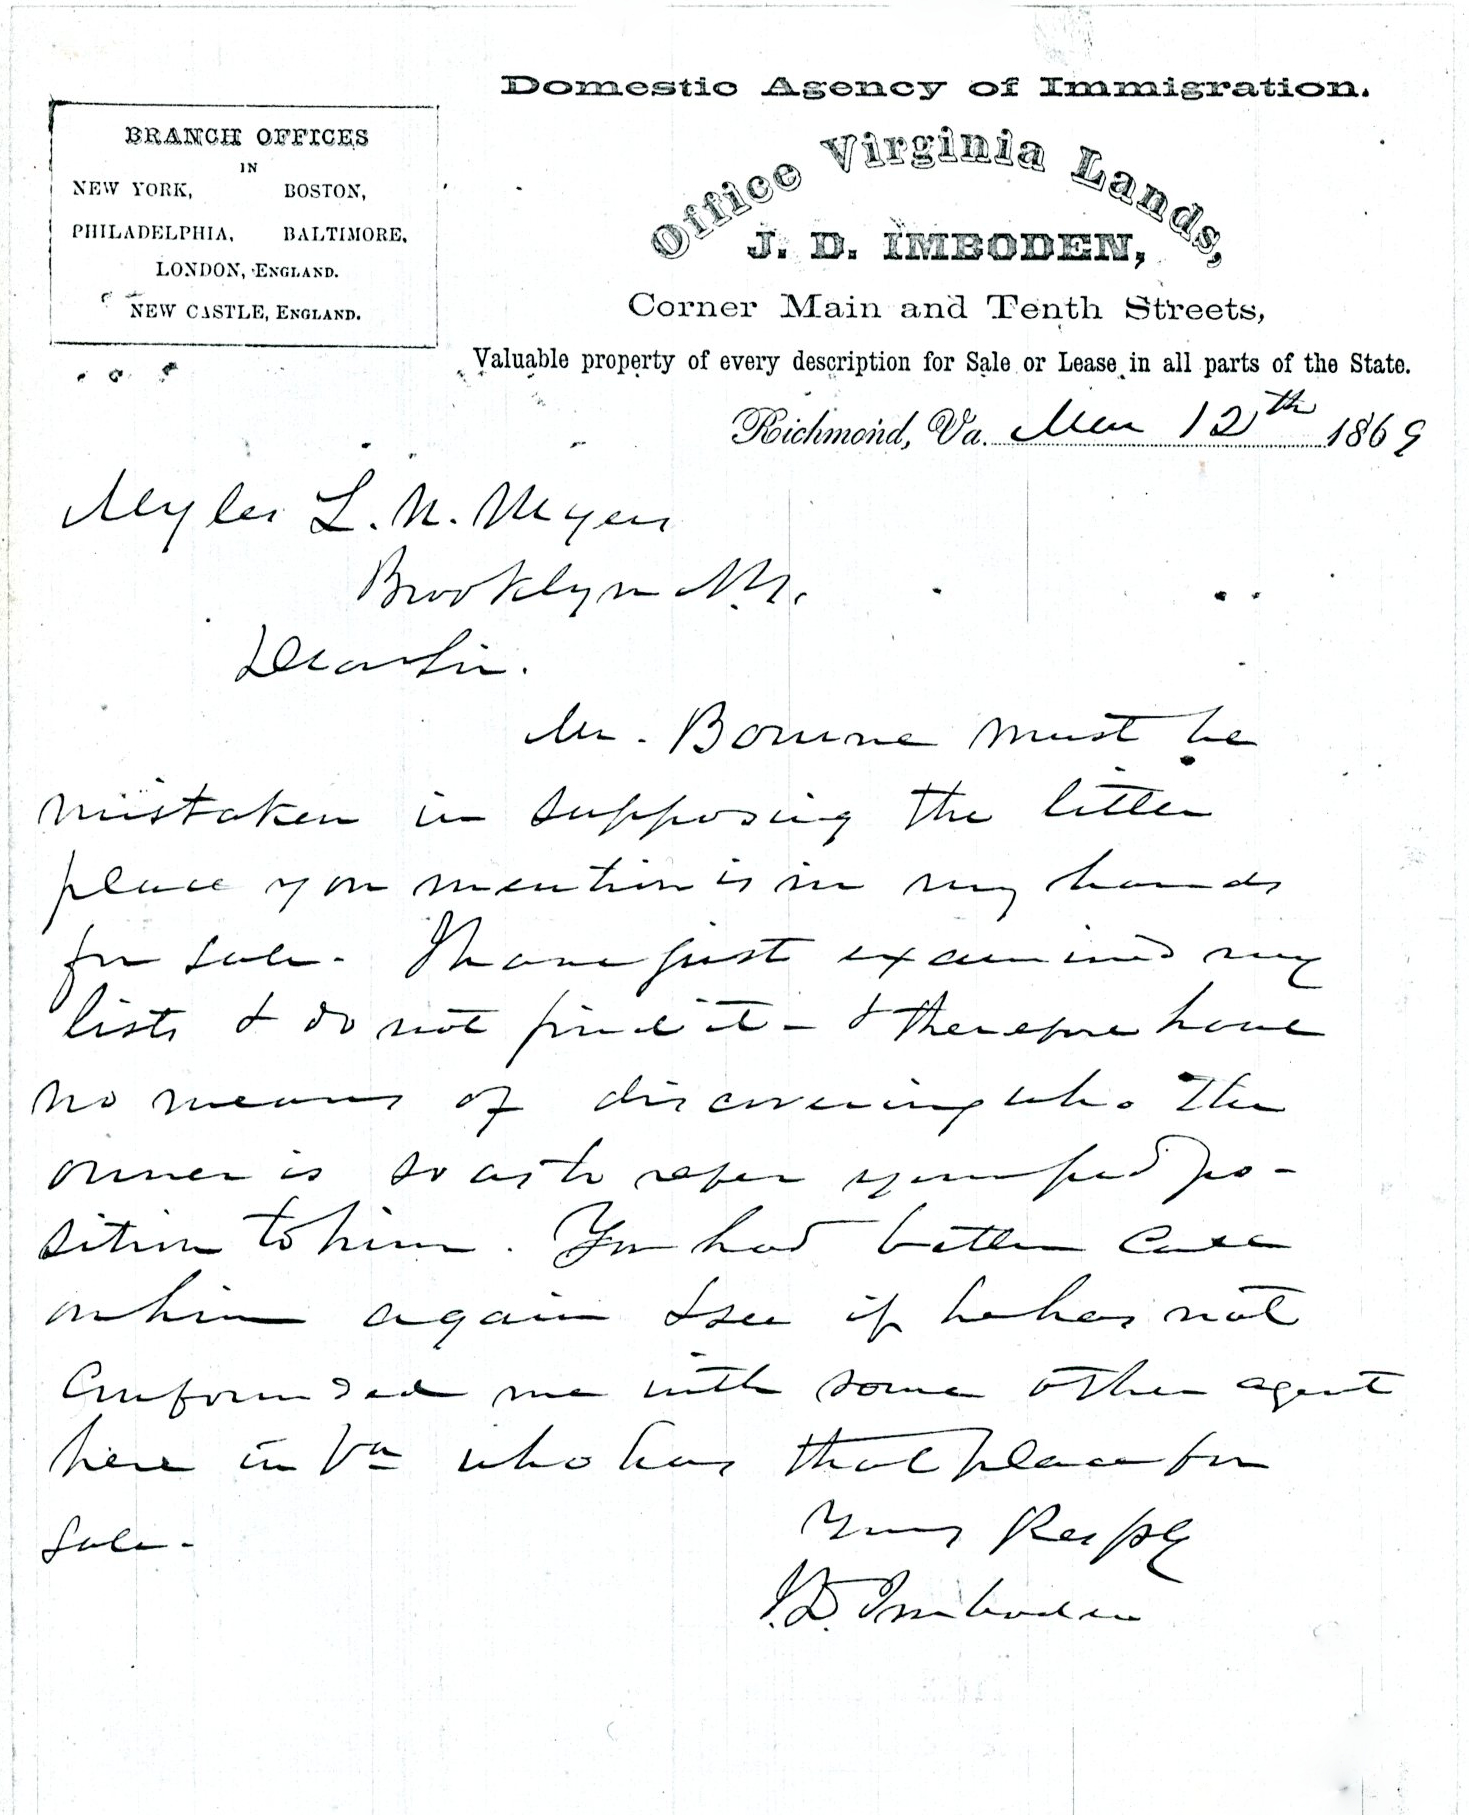 Domestic Agency of Immigration.
BRANCH OFFICES
IN
NEW YORK, BOSTON,
PHILADELPHIA, BALTIMORE,
LONDON, ENGLAND.
NEW CASTLE, ENGLAND.
Office Virginia Lands,
J. D. IMBODEN,
Corner Main and Tenth Streets,
Valuable property of every description for Sale or Lease in all parts of the State.
Richmond, Va. Mar 12th 1869
Myles L. N. Myers
Brooklyn N.Y.
Dear Sir.
Mr. Bourne must be
mistaken in supposing the little
place you mention is in my hands
for sale. I have just examined my
lists & do not find it - & therefore have
no means of discovering who the
owner is so as to refer your po-
sition to him. You had better call
on him again & see if he has not
confounded me with some other agent
here in Va who has that place for
sale.
Yours Resply
J.D. Imboden